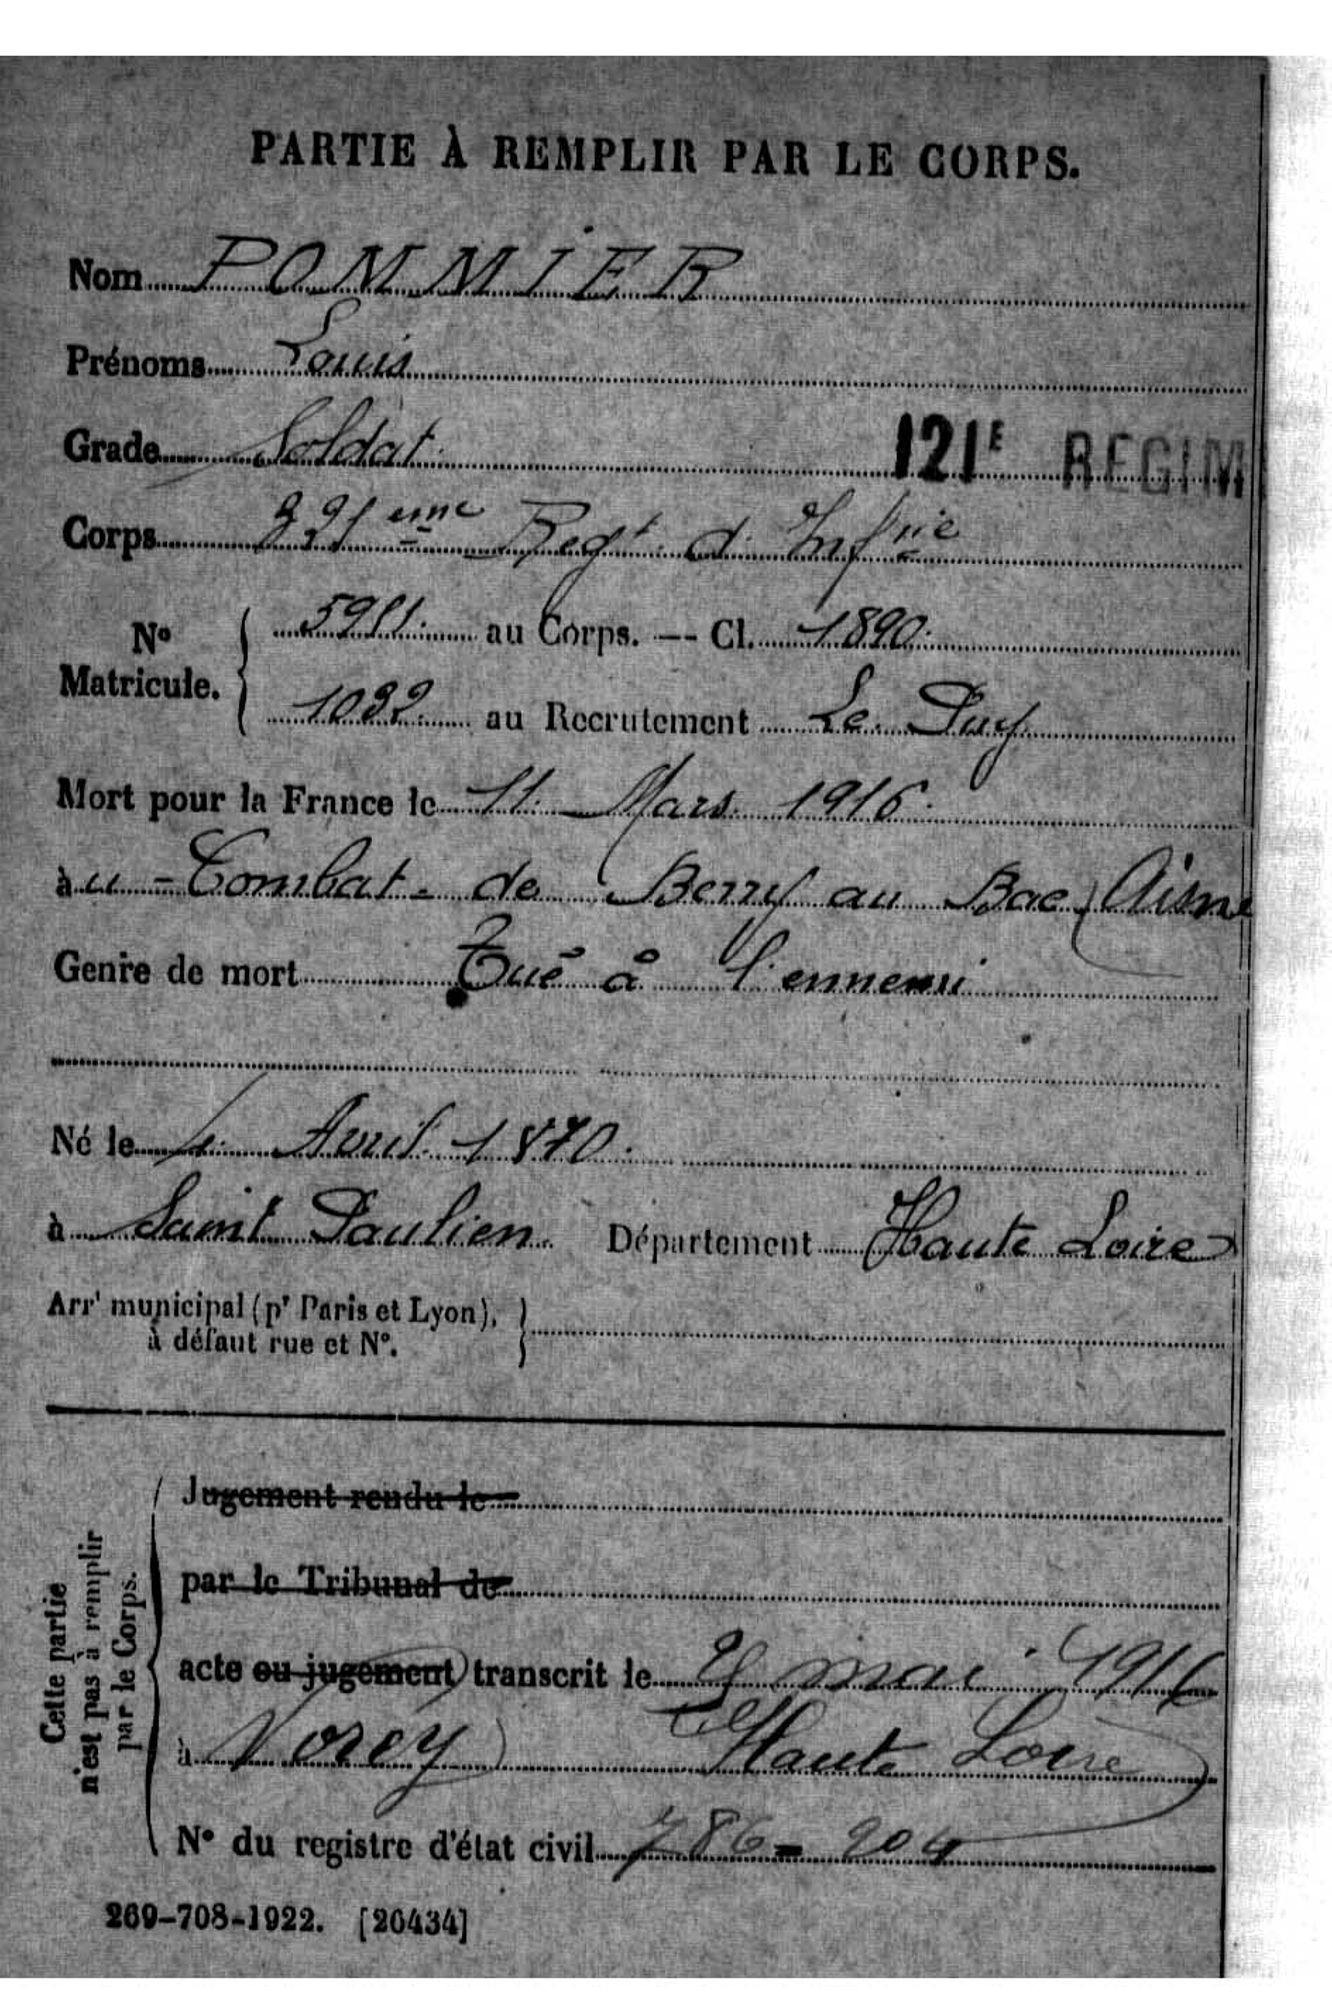 PARTIE À REMPLIR PAR LE CORPS.
Nom POMMIER
Prénoms Louis
Grade Soldat
121E REGIM
Corps 321eme Regt d'Infrie
No Matricule. 5911 au Corps. — Cl. 1890.
1032 au Recrutement Le Puy
Mort pour la France le 11 Mars 1916.
à u - Combat - de Berry au Bac (Aisne
Genre de mort Tué à l'ennemi
Né le Avril 1870.
à Saint Paulien Département Haute Loire
Arrt municipal (pr Paris et Lyon),
à défaut rue et N°.
Cette partie
n'est pas à remplir
par le Corps.
Jugement rendu le
par le Tribunal de
acte ou jugement transcrit le mai 1916
à Vorey (Haute Loire)
N° du registre d'état civil 786 = 204
269-708-1922. [26434]